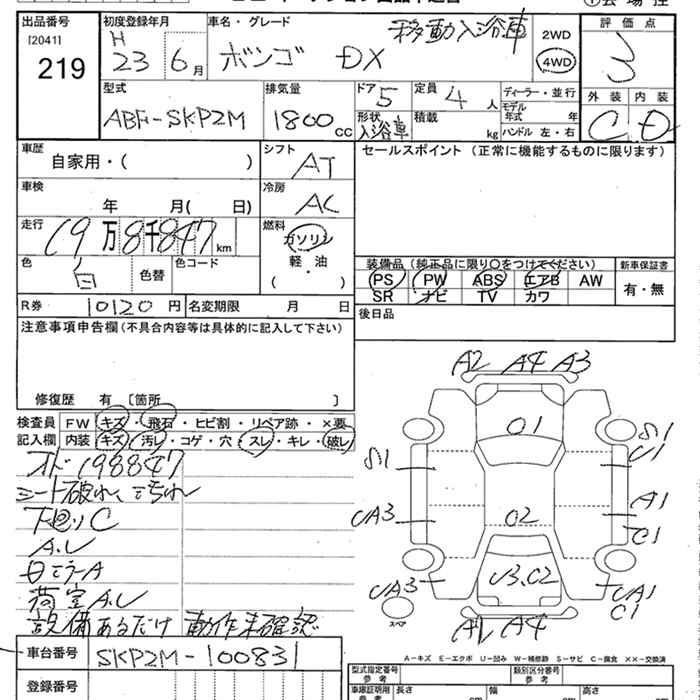 出品番号
[2041]
219
初度登録年月
H
23 6月
車名・グレード
移動入浴車
ボンゴ DX
2WD
4WD
評価点
3
外装 内装
C D
型式
ABF-SKP2M
排気量
1800 CC
ドア 5
形状
入浴車
定員 4 人
積載 kg
ディーラー・並行
モデル
年式 年
ハンドル 左・右
車歴
自家用・( )
シフト
AT
セールスポイント (正常に機能するものに限ります)
車検
年 月( 日)
冷房
AC
走行
19万8千847km
燃料
ガソリン
軽・油
( )
色
白
色替
色コード
装備品 (純正品に限り○をつけてください)
PS PW ABS エアB AW
SR ナビ TV カワ
新車保証書
有・無
R券 10120円 名変期限 月 日
後日品
注意事項申告欄(不具合内容等は具体的に記入して下さい)
修復歴 有 [箇所 ]
検査員
記入欄
FW キズ・飛石・ヒビ割・リペア跡・×要
内装 キズ・汚レ・コゲ・穴・スレ・キレ・破レ
オド198847
シート破れ、汚れ
下廻りC
A.U
白ミラーA
荷室A.U
設備あるだけ 動作未確認
A2 A4 A3
O1
S1
U1
S1
A1
UA3
O2
C1
UA3
U3.C2
UA1
C1
スペア
A1 A4
A-キズ E-エクボ U-凹み W-補修跡 S-サビ C-腐食 ××-交換済
車台番号
SKP2M-100831
登録番号
型式指定番号
参考
類別区分番号
参考
車庫証明用
参考
長さ
cm
幅
cm
高さ
cm